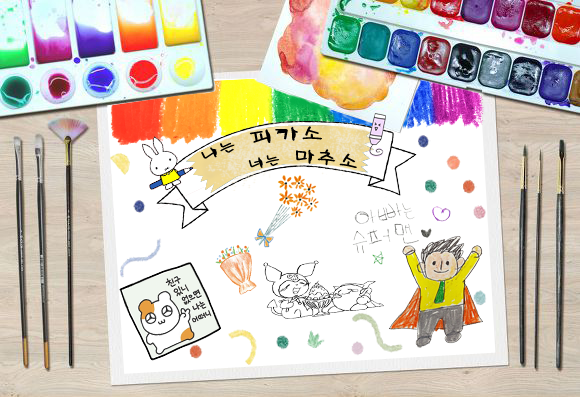 나는 피카소
너는 마추소
아빠는
슈퍼맨
친구
있니
없으면
나는
어떠니